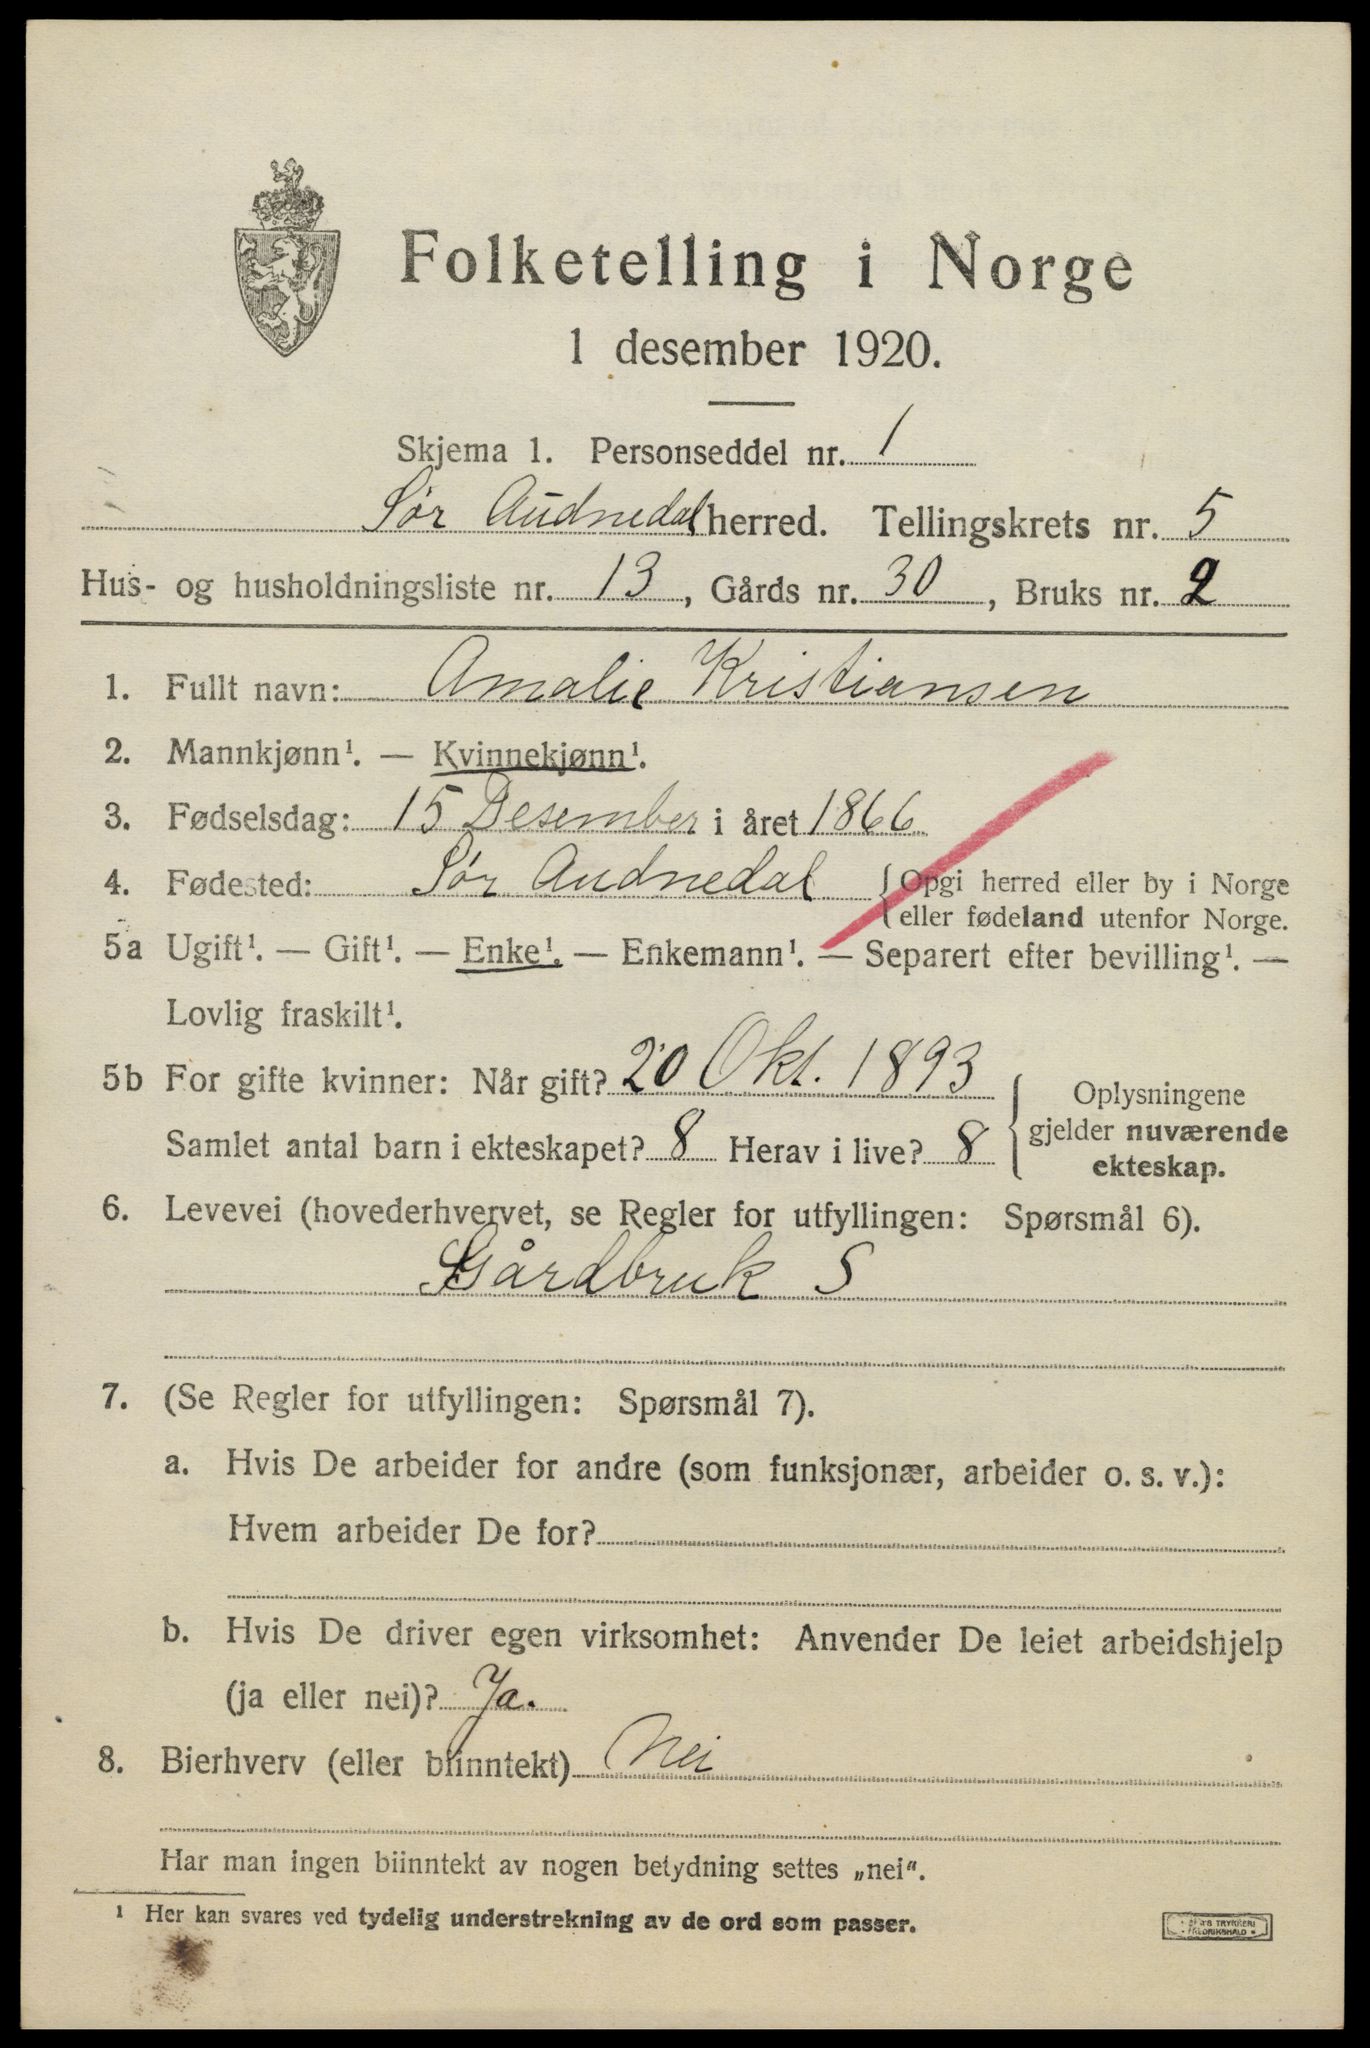 Folketelling i Norge
1 desember 1920.
Skjema 1. Personseddel nr. 1
Sør Audnedal herred. Tellingskrets nr. 5
Hus- og husholdningsliste nr. 13, Gårds nr. 30, Bruks nr. 2
1. Fullt navn: Amalie Kristiansen
2. Mannkjønn¹. — Kvinnekjønn¹.
3. Fødselsdag: 15 Desember i året 1866
4. Fødested: Sør Audnedal {Opgi herred eller by i Norge
eller fødeland utenfor Norge.
5a Ugift¹. — Gift¹. — Enke¹. — Enkemann¹. — Separert efter bevilling¹. —
Lovlig fraskilt¹.
5b For gifte kvinner: Når gift? 20 Okt. 1893
Samlet antal barn i ekteskapet? 8 Herav i live? 8
{Oplysningene
gjelder nuværende
ekteskap.
6. Levevei (hovederhvervet, se Regler for utfyllingen: Spørsmål 6).
Gårdbruk S
7. (Se Regler for utfyllingen: Spørsmål 7).
a. Hvis De arbeider for andre (som funksjonær, arbeider o. s. v.):
Hvem arbeider De for?
b. Hvis De driver egen virksomhet: Anvender De leiet arbeidshjelp
(ja eller nei)? Ja.
8. Bierhverv (eller biinntekt) Nei
Har man ingen biinntekt av nogen betydning settes „nei“.
¹ Her kan svares ved tydelig understrekning av de ord som passer.
TRYKKERI
FREDRIKSHALD